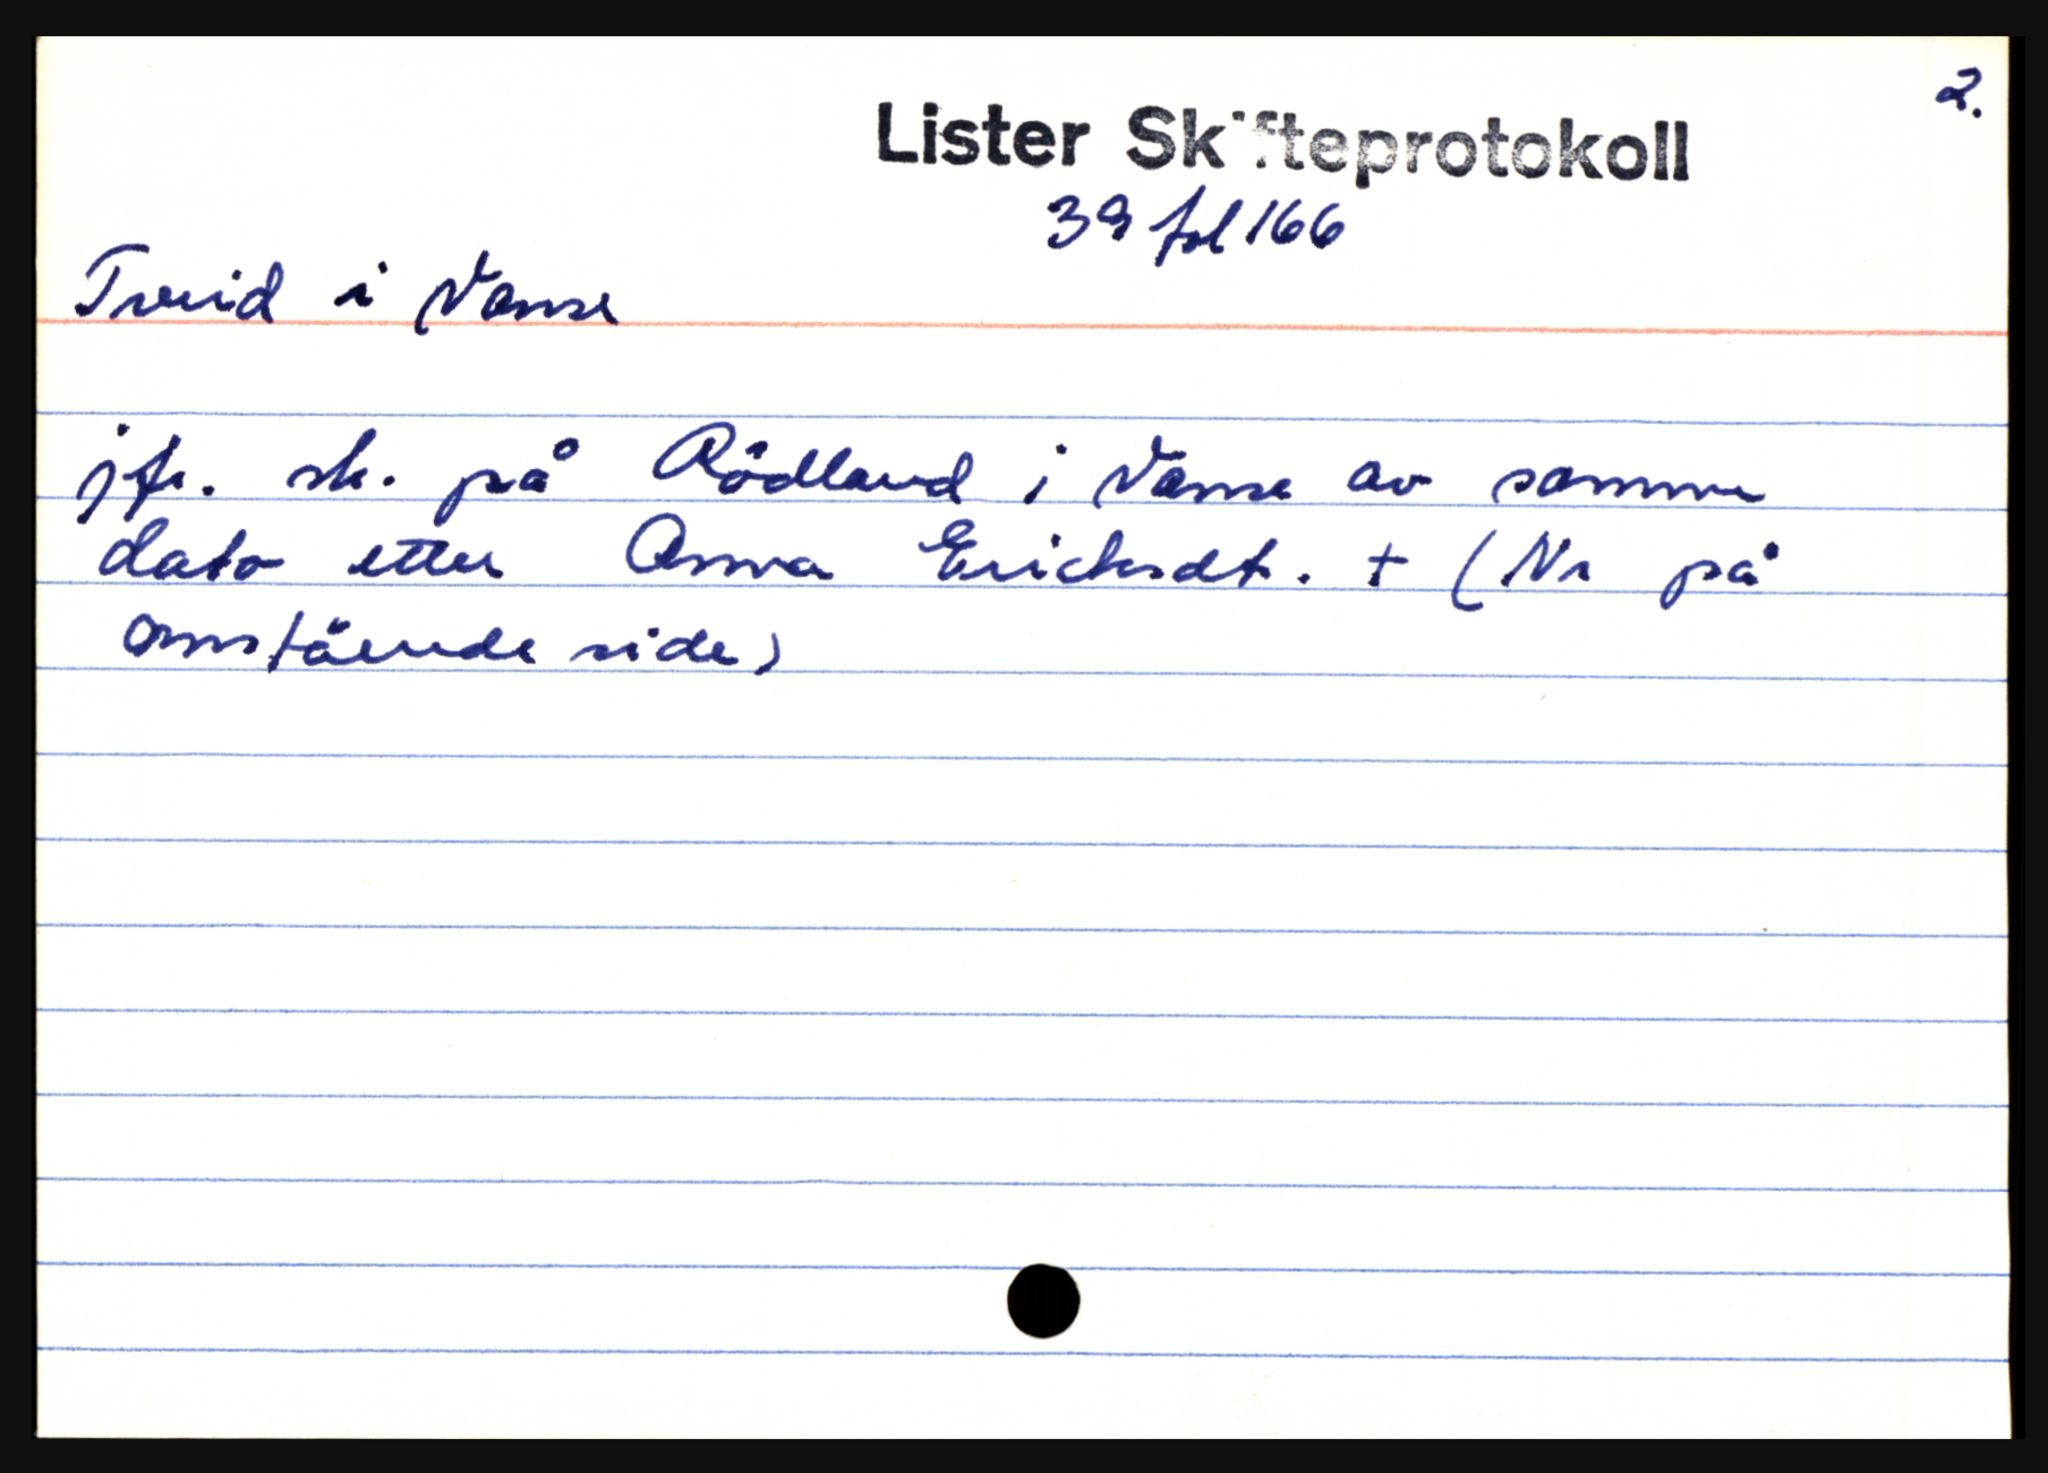 2.
Lister Skifteprotokoll
39 fol 166
Tveid i Vanse
jfr. sk. på Rödland i Vanse av samme
dato etter Anna Ericksdt. + (Nr på
omstående side)